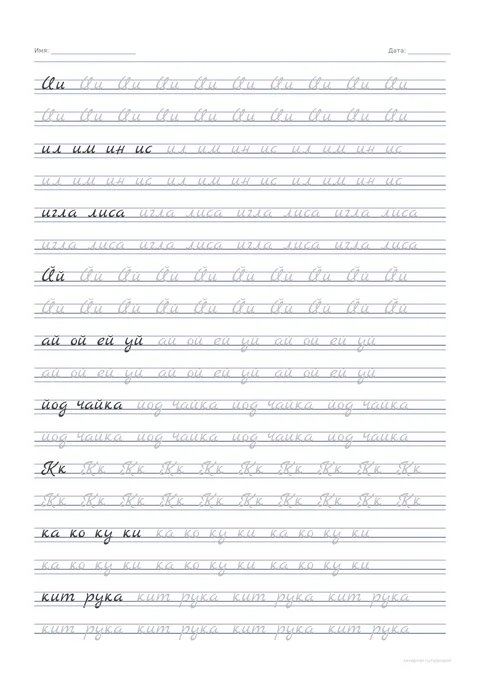 Имя: Дата:
Ии Ии Ии Ии Ии Ии Ии Ии Ии Ии
Ии Ии Ии Ии Ии Ии Ии Ии Ии Ии
ил им ин ис ил им ин ис ил им ин ис
ил им ин ис ил им ин ис ил им ин ис
игла лиса игла лиса игла лиса игла лиса
игла лиса игла лиса игла лиса игла лиса
Йй Йй Йй Йй Йй Йй Йй Йй Йй Йй
Йй Йй Йй Йй Йй Йй Йй Йй Йй Йй
ай ой ей уй ай ой ей уй ай ой ей уй
ай ой ей уй ай ой ей уй ай ой ей уй
йод чайка йод чайка йод чайка йод чайка
йод чайка йод чайка йод чайка йод чайка
Кк Кк Кк Кк Кк Кк Кк Кк Кк Кк
Кк Кк Кк Кк Кк Кк Кк Кк Кк Кк
ка ко ку ки ка ко ку ки ка ко ку ки
ка ко ку ки ка ко ку ки ка ко ку ки
кит рука кит рука кит рука кит рука
кит рука кит рука кит рука кит рука